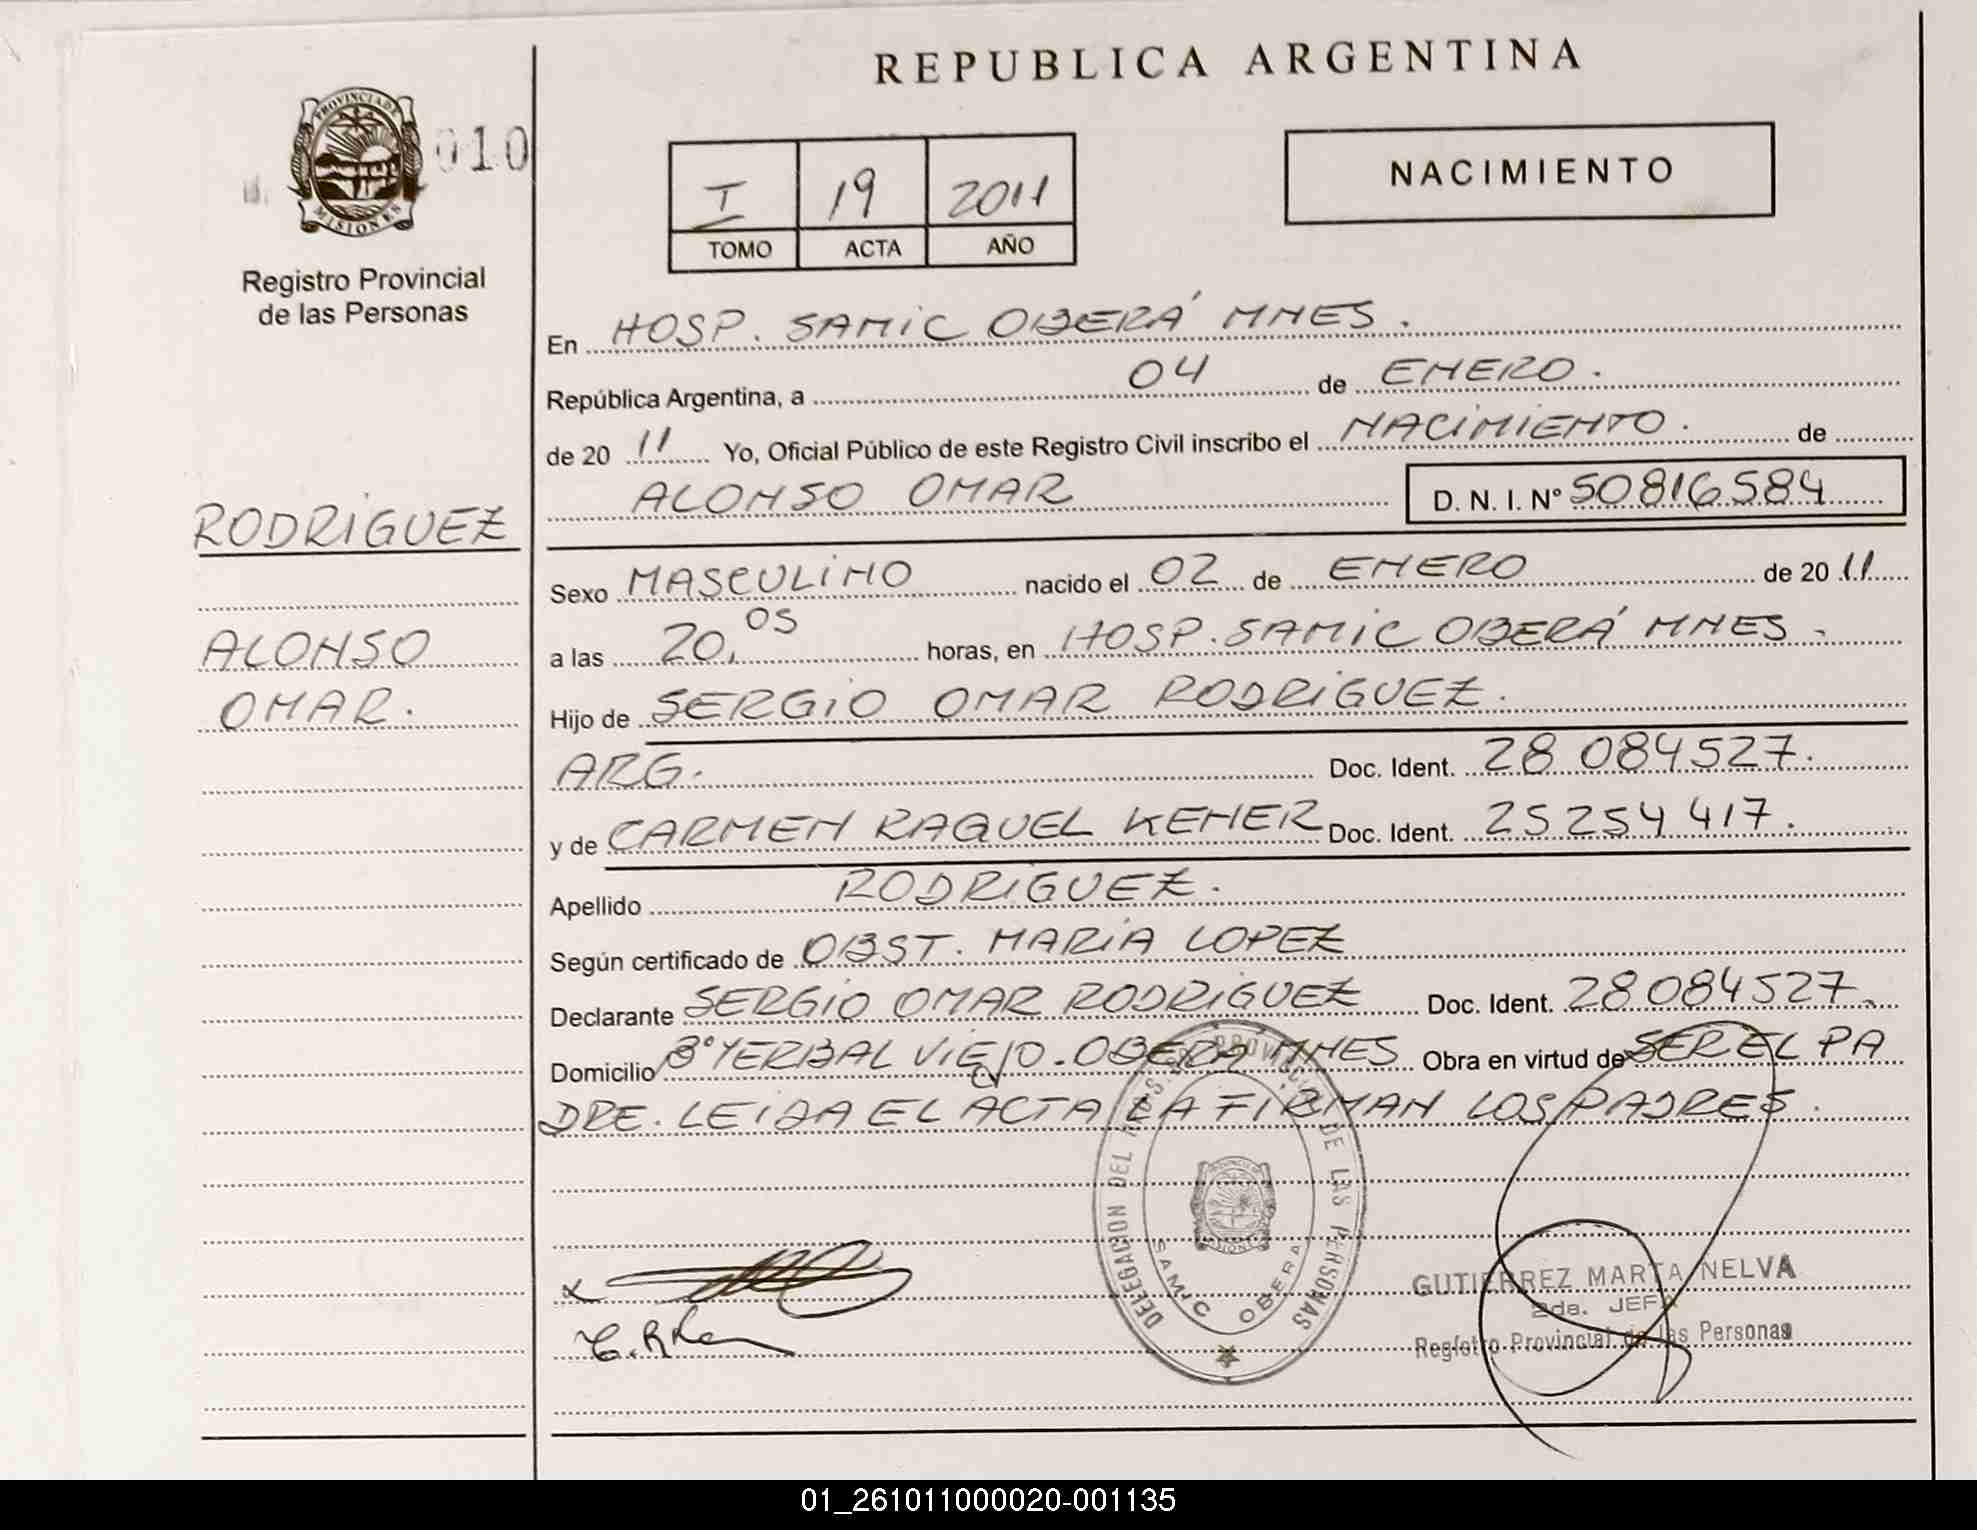 REPUBLICA ARGENTINA
PROVINCIA DE
MISIONES
010
Registro Provincial
de las Personas
I 19 2011
TOMO ACTA AÑO
NACIMIENTO
En HOSP. SAMIC OBERÁ MNES.
República Argentina, a 04 de ENERO.
de 20 11 Yo, Oficial Público de este Registro Civil inscribo el NACIMIENTO. de
ALONSO OMAR D. N. I. Nº 50816584
RODRIGUEZ
ALONSO
OMAR.
Sexo MASCULINO nacido el 02 de ENERO de 20 11
a las 20,05 horas, en HOSP. SAMIC OBERÁ MNES.
Hijo de SERGIO OMAR RODRIGUEZ.
ARG. Doc. Ident. 28 084527.
y de CARMEN RAQUEL KENER Doc. Ident. 25254 417.
Apellido RODRIGUEZ.
Según certificado de OBST. MARIA LOPEZ
Declarante SERGIO OMAR RODRIGUEZ Doc. Ident. 28084527.
Domicilio Bº YERBAL VIEJO - OBERÁ MNES Obra en virtud de SER EL PA
DRE. LEIDA EL ACTA LA FIRMAN LOS PADRES.
DELEGACION DEL REGISTRO PROVINCIAL DE LAS PERSONAS
SAMIC OBERA
GUTIERREZ MARTA NELVA
2da. JEFA
Registro Provincial de las Personas
01_261011000020-001135